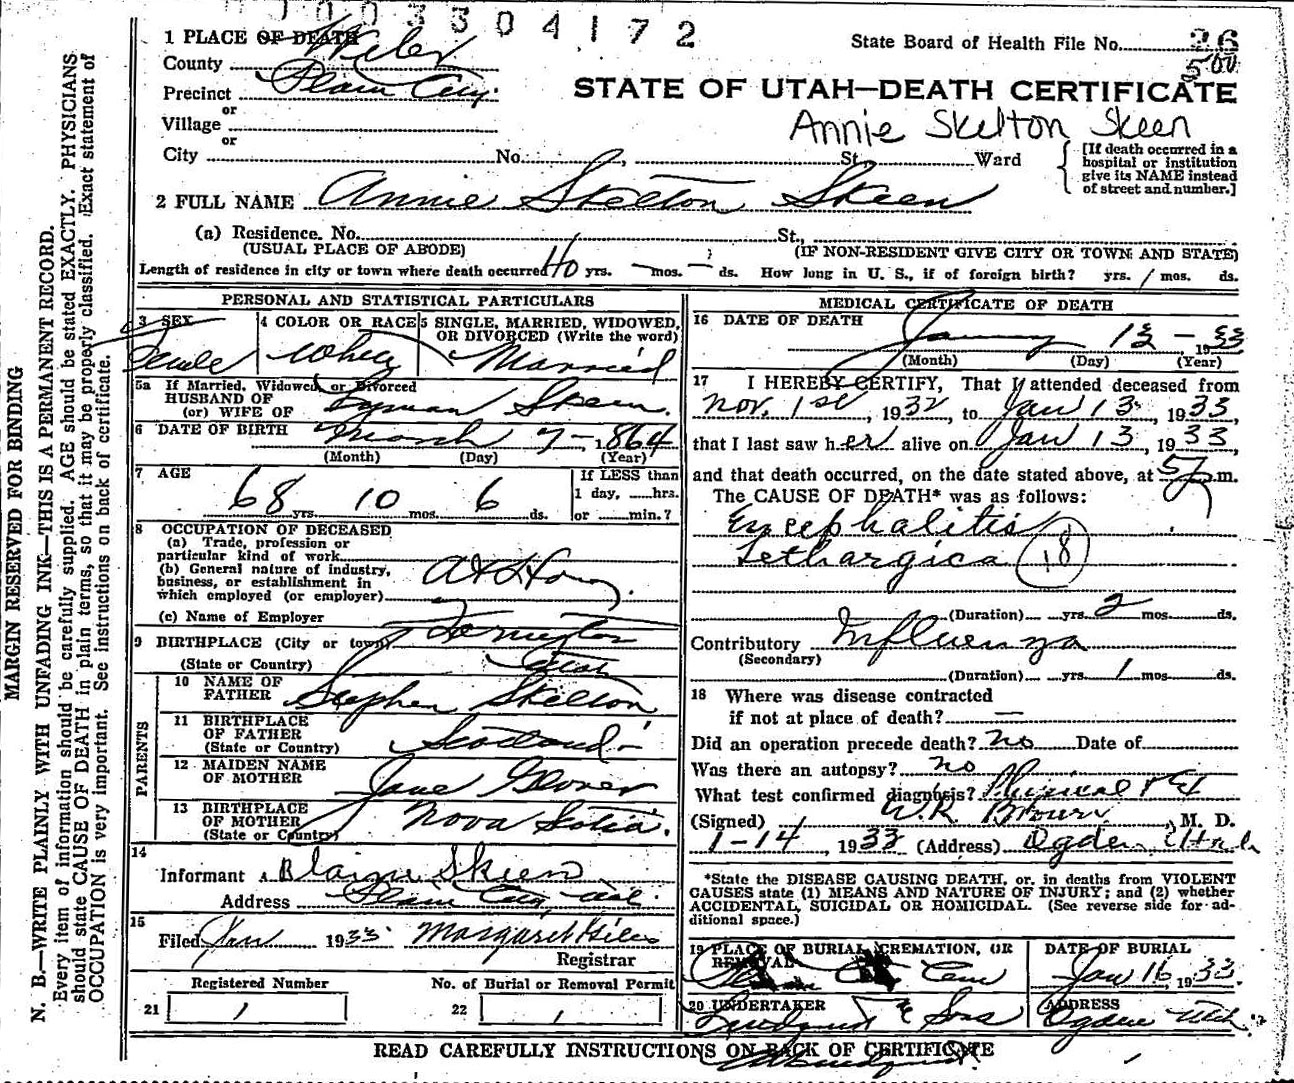 1003304172
State Board of Health File No. 26
500
1 PLACE OF DEATH
County Weber
Precinct Plain City
or
Village
or
City No. St. Ward
STATE OF UTAH—DEATH CERTIFICATE
Annie Skelton Skeen
[If death occurred in a hospital or institution give its NAME instead of street and number.]
2 FULL NAME Annie Skelton Skeen
(a) Residence. No. St.,
(USUAL PLACE OF ABODE) (IF NON-RESIDENT GIVE CITY OR TOWN AND STATE)
Length of residence in city or town where death occurred 40 yrs. — mos. — ds. How long in U. S., if of foreign birth? yrs. / mos. ds.
PERSONAL AND STATISTICAL PARTICULARS
3 SEX
Female
4 COLOR OR RACE
White
5 SINGLE, MARRIED, WIDOWED, OR DIVORCED (Write the word)
Married
5a If Married, Widowed, or Divorced
HUSBAND OF
(or) WIFE OF Lyman Skeen.
6 DATE OF BIRTH March 7 – 1864
(Month) (Day) (Year)
7 AGE
68 yrs. 10 mos. 6 ds.
If LESS than
1 day, ......hrs.
or ......min.?
8 OCCUPATION OF DECEASED
(a) Trade, profession or
particular kind of work
(b) General nature of industry,
business, or establishment in
which employed (or employer) At Home
(c) Name of Employer
9 BIRTHPLACE (City or town)
(State or Country) Utah
PARENTS
10 NAME OF FATHER Stephen Skelton
11 BIRTHPLACE OF FATHER
(State or Country) Scotland –
12 MAIDEN NAME OF MOTHER Jane Glover
13 BIRTHPLACE OF MOTHER
(State or Country) Nova Sotia.
14
Informant Blain Skeen
Address Plain City, Utah.
15
Filed Jan 1933 Margaret Giles
Registrar
Registered Number
21 1
No. of Burial or Removal Permit
22 1
MEDICAL CERTIFICATE OF DEATH
16 DATE OF DEATH
January 13 – 1933
(Month) (Day) (Year)
17 I HEREBY CERTIFY, That I attended deceased from
Nov. 1st, 1932, to Jan 13, 1933,
that I last saw her alive on Jan 13, 1933,
and that death occurred, on the date stated above, at 5 p.m.
The CAUSE OF DEATH* was as follows:
Encephalitis
Lethargica 18
(Duration) yrs. 2 mos. ds.
Contributory Influenza
(Secondary)
(Duration) yrs. 1 mos. ds.
18 Where was disease contracted
if not at place of death? —
Did an operation precede death? no Date of
Was there an autopsy? no
What test confirmed diagnosis? Phisical
(Signed) W.R. Brown, M. D.
1-14, 1933 (Address) Ogden Utah
*State the DISEASE CAUSING DEATH, or, in deaths from VIOLENT
CAUSES state (1) MEANS AND NATURE OF INJURY; and (2) whether
ACCIDENTAL, SUICIDAL OR HOMICIDAL. (See reverse side for additional space.)
19 PLACE OF BURIAL, CREMATION, OR REMOVAL
Cem
DATE OF BURIAL
Jan 16, 1933.
20 UNDERTAKER
Lindquist & Sons
ADDRESS
Ogden Utah.
READ CAREFULLY INSTRUCTIONS ON BACK OF CERTIFICATE
MARGIN RESERVED FOR BINDING
N. B.—WRITE PLAINLY WITH UNFADING INK—THIS IS A PERMANENT RECORD.
Every item of information should be carefully supplied. AGE should be stated EXACTLY. PHYSICIANS
should state CAUSE OF DEATH in plain terms, so that it may be properly classified. Exact statement of
OCCUPATION is very important. See instructions on back of certificate.